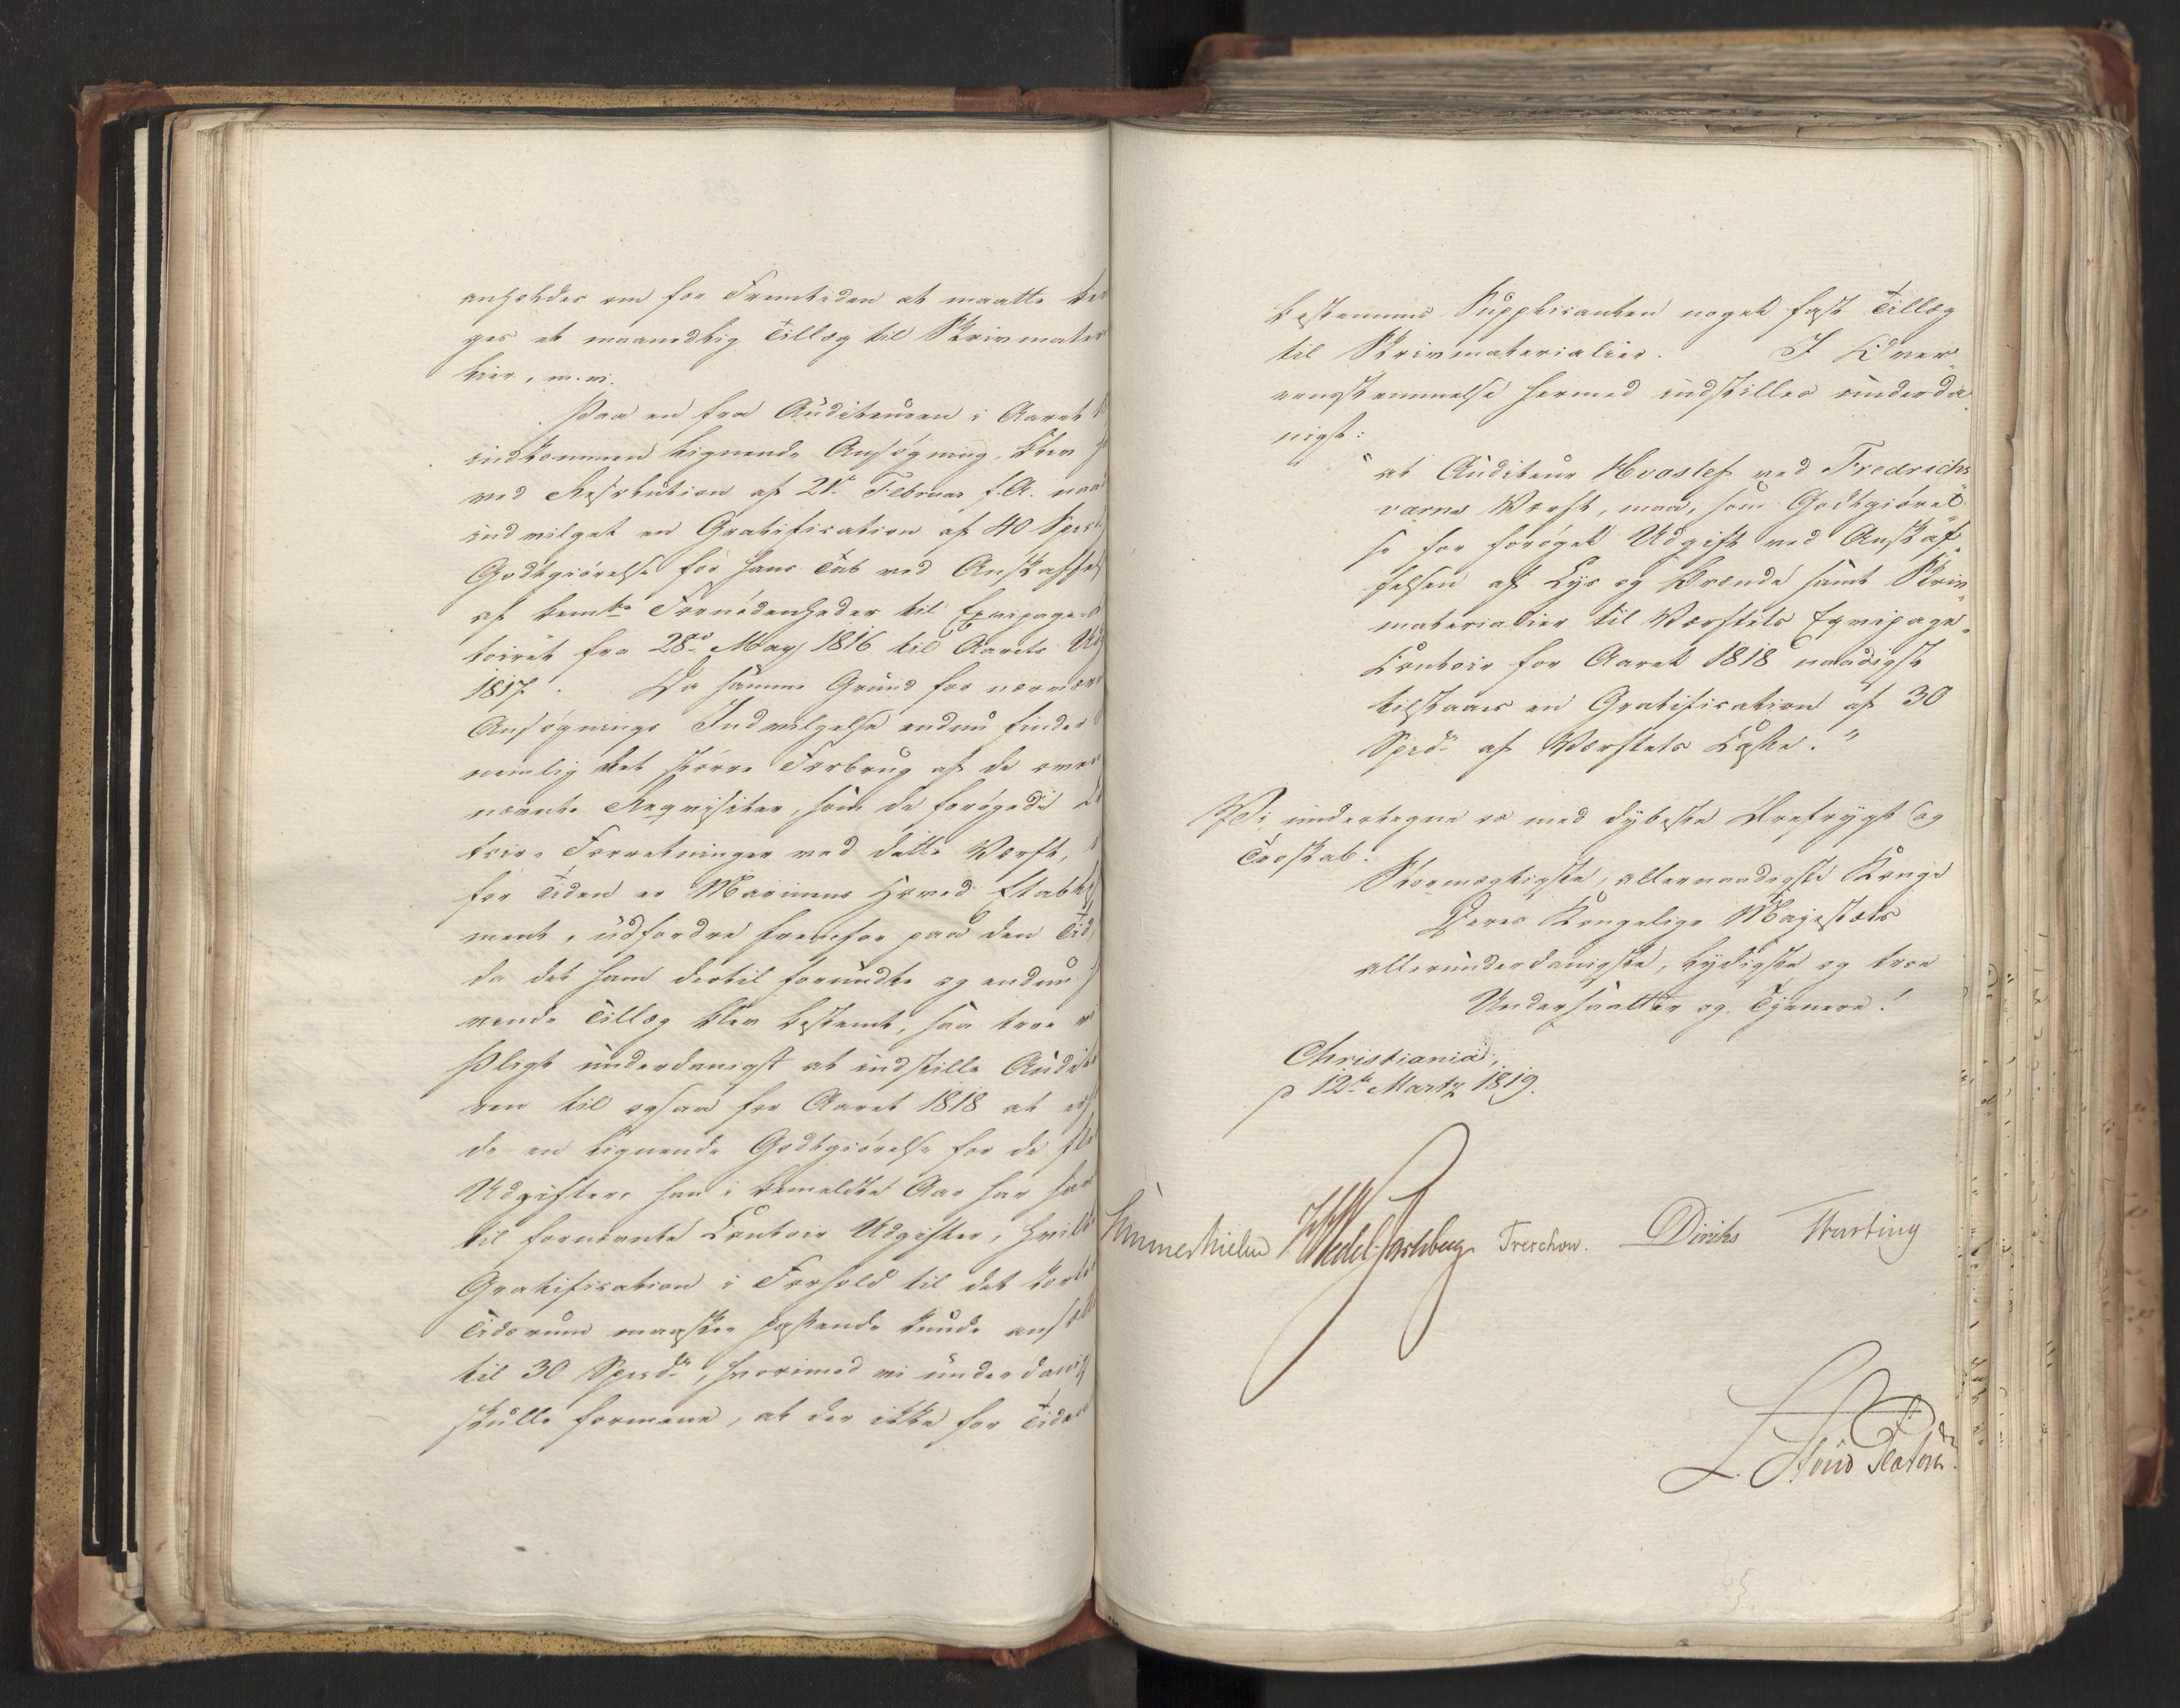 anholdes om for Fremtiden at maatte
ges et maanedlig Tillæg til Skrivmater
lier, m. v.
Paa en fra Auditeuren i Aaret
indkommen lignende Ansøgning, blev
ved Resolution af 21de Februar f. A. naa
indvilget en Gratification af 40 Spec
Godtgiørelse for hans Tab ved Anskaffels
af bemte Fornødenheder til Eqvipage-C
toiret fra 28de May 1816 til Aarets Ud
1817. Da samme Grund for nærvær
Ansøgnings Indvilgelse endnu finder
nemlig det større Forbrug af de oven
nævnte Reqvisiter, som de forøgede
toir-Forretninger ved dette Værft,
for Tiden er Marinens Hoved-Etablis
ment, udfordre fremfor paa den Tid,
da det ham dertil forundte og endnu
vende Tillæg blev bestemt, saa troe vi
Pligt underdanigst at indstille Audit
ren til ogsaa for Aaret 1818 at
de en lignende Godtgiørelse for de
Udgifter, han i bemeldte Aar har hav
til fornævnte Contoir Udgifter, hvilk
Gratification i Forhold til det kort
Tidsrum maaskee passende kunde ansæ
til 30 Specdr, hvorimod vi underdanigst
skulle formene, at der ikke for Tiden
bestemmes Supplicanten noget fast Tillæg
til Skrivmaterialier. I Over
eensstemmelse hermed indstilles underda
nigst:
"at Auditeur Hvoslef ved Fredrichs
værns Værft, maa, som Godtgiørel
se for forøget Udgift ved Anskaf
felsen af Lys og Brænde samt Skriv
materialier til Værftets Eqvipage
Contoir for Aaret 1818 naadigst
tilstaaes en Gratification af 30
Spcdr af Værftets Casse."
Vi undertegne os med dybeste Ærefrygt og
Troskab.
Stormægtigste, allernaadigste Konge
Deres Kongelige Majestæts
allerunderdanigste, lydigste og troe
Undersaatter og Tjenere!
Christiania,
d 12te Martz 1819.
Sommerhielm Wedel-Jarlsberg Treschow. Diriks Fasting
L.